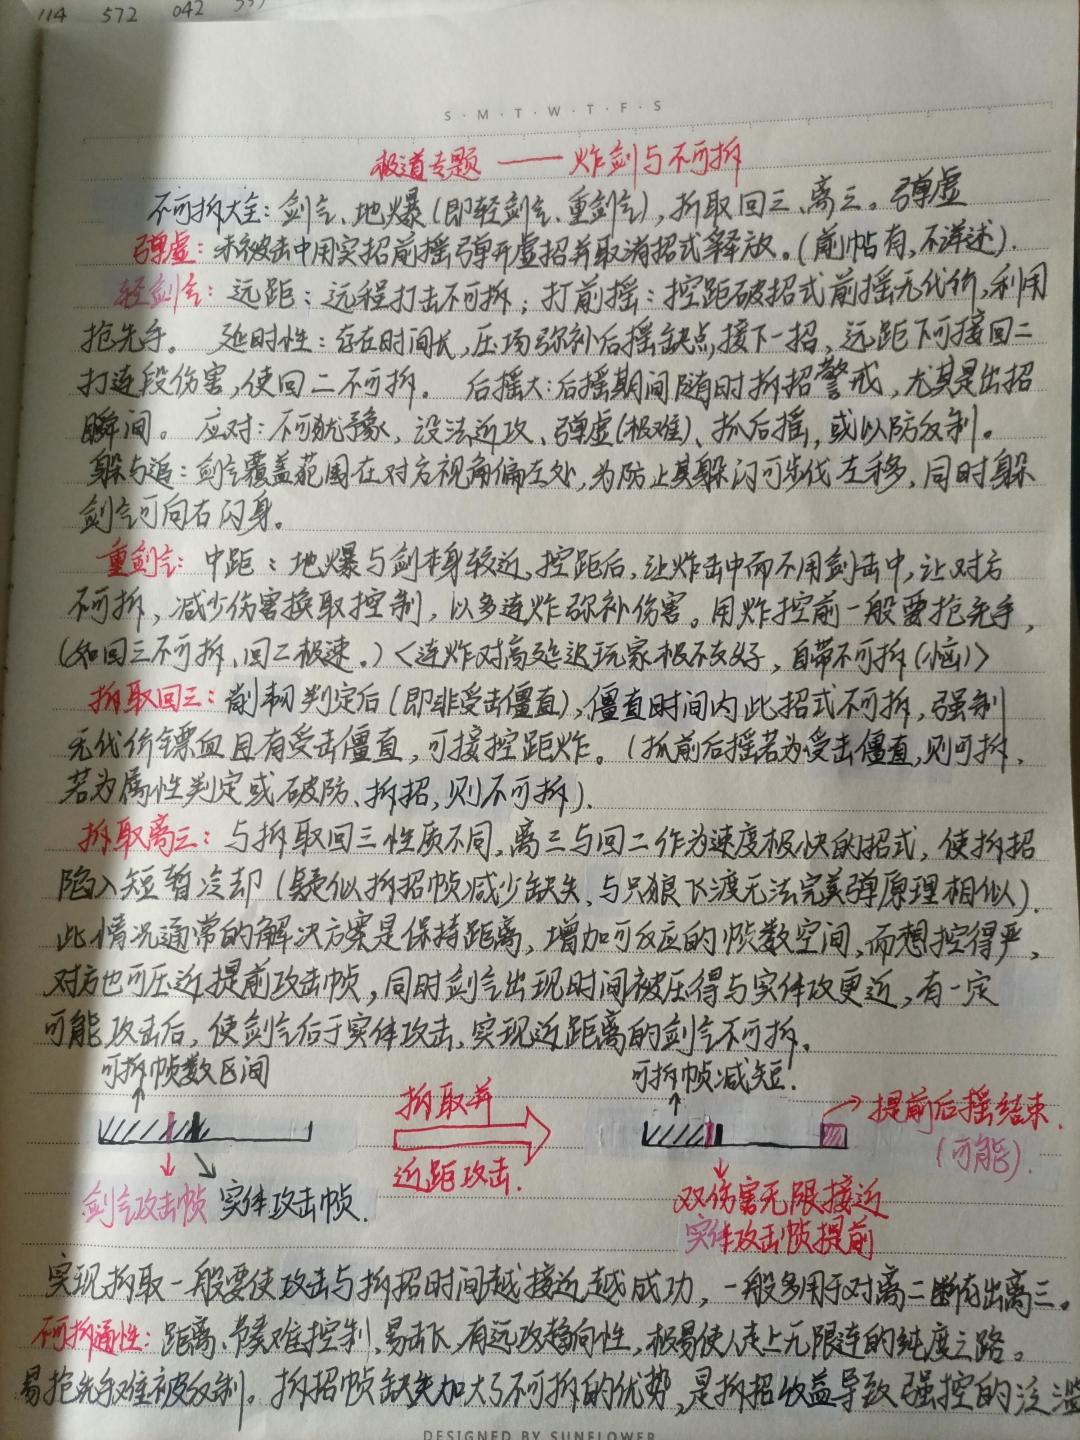 114 572 042
S·M·T·W·T·F·S
极道专题 —— 炸剑与不可拆
不可拆大全：剑气、地爆（即轻剑气、重剑气），拆取回三、离三。弹虚
弹虚：未被击中用实招前摇弹开虚招并取消招式释放。（前帖有，不详述）.
轻剑气：远距：远程打击不可拆；打前摇：控距破招式前摇无代价，利用
抢先手。 延时性：存在时间长，压场弥补后摇缺点，接下一招，远距下可接回二
打连段伤害，使回二不可拆。 后摇大：后摇期间随时拆招警戒，尤其是出招
瞬间。 应对：不可犹豫，设法近攻、弹虚(极难)、抓后摇，或以防反制。
躲与追：剑气覆盖范围在对方视角偏左处，为防止其躲闪可步伐左移，同时躲
剑气可向右闪身。
重剑气：中距：地爆与剑本身较近，控距后，让炸击中而不用剑击中，让对方
不可拆，减少伤害换取控制，以多连炸弥补伤害。用炸控前一般要抢先手，
（如回三不可拆、回二极速。）<连炸对高延迟玩家极不友好，自带不可拆（恼）>
拆取回三：削韧判定后（即非受击僵直），僵直时间内此招式不可拆，强制
无代价镖血且有受击僵直，可接控距炸。（抓前后摇若为受击僵直，则可拆，
若为属性判定或破防、拆招，则不可拆）.
拆取离三：与拆取回三性质不同，离三与回二作为速度极快的招式，使拆招
陷入短暂冷却（疑似拆招帧减少缺失，与只狼飞渡无法完美弹原理相似）.
此情况通常的解决方案是保持距离，增加可反应的帧数空间，而想控得严，
对方也可压近提前攻击帧，同时剑气出现时间被压得与实体攻更近，有一定
可能攻击后，使剑气后于实体攻击，实现近距离的剑气不可拆。
可拆帧数区间
可拆帧减短.
拆取并
近距攻击.
提前后摇结束.
（可能）.
剑气攻击帧 实体攻击帧.
双伤害无限接近
实体攻击帧提前
实现拆取一般要使攻击与拆招时间越接近越成功，一般多用于对离二断存出离三。
不可拆通性：距离、节奏难控制，易击飞，有远攻趋向性，极易使人走上无限连的纯度之路。
易抢先手难被反制。拆招帧缺失加大了不可拆的优势，是拆招收益导致强控的泛滥
DESIGNED BY SUNFLOWER